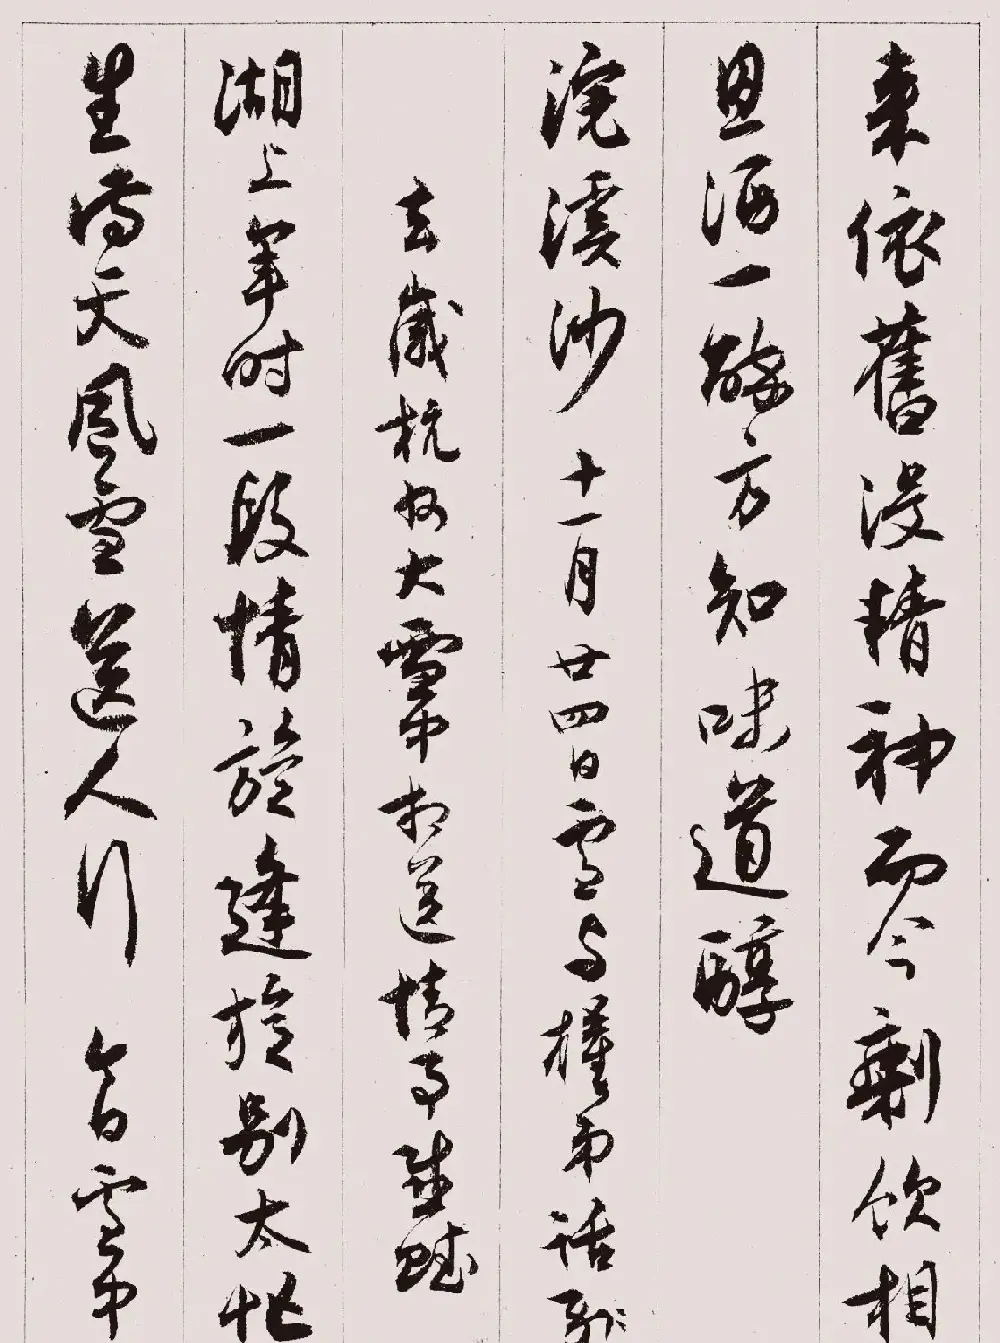 来依舊没精神而今剩飲相
思酒一醉方知味道醇
浣溪沙 十一月廿四日雪與權弟話到
去歲杭州大雪中相送情事感賦
湖上年时一段情旋逢旋别太忙
生满天風雪送人行 今日雪中